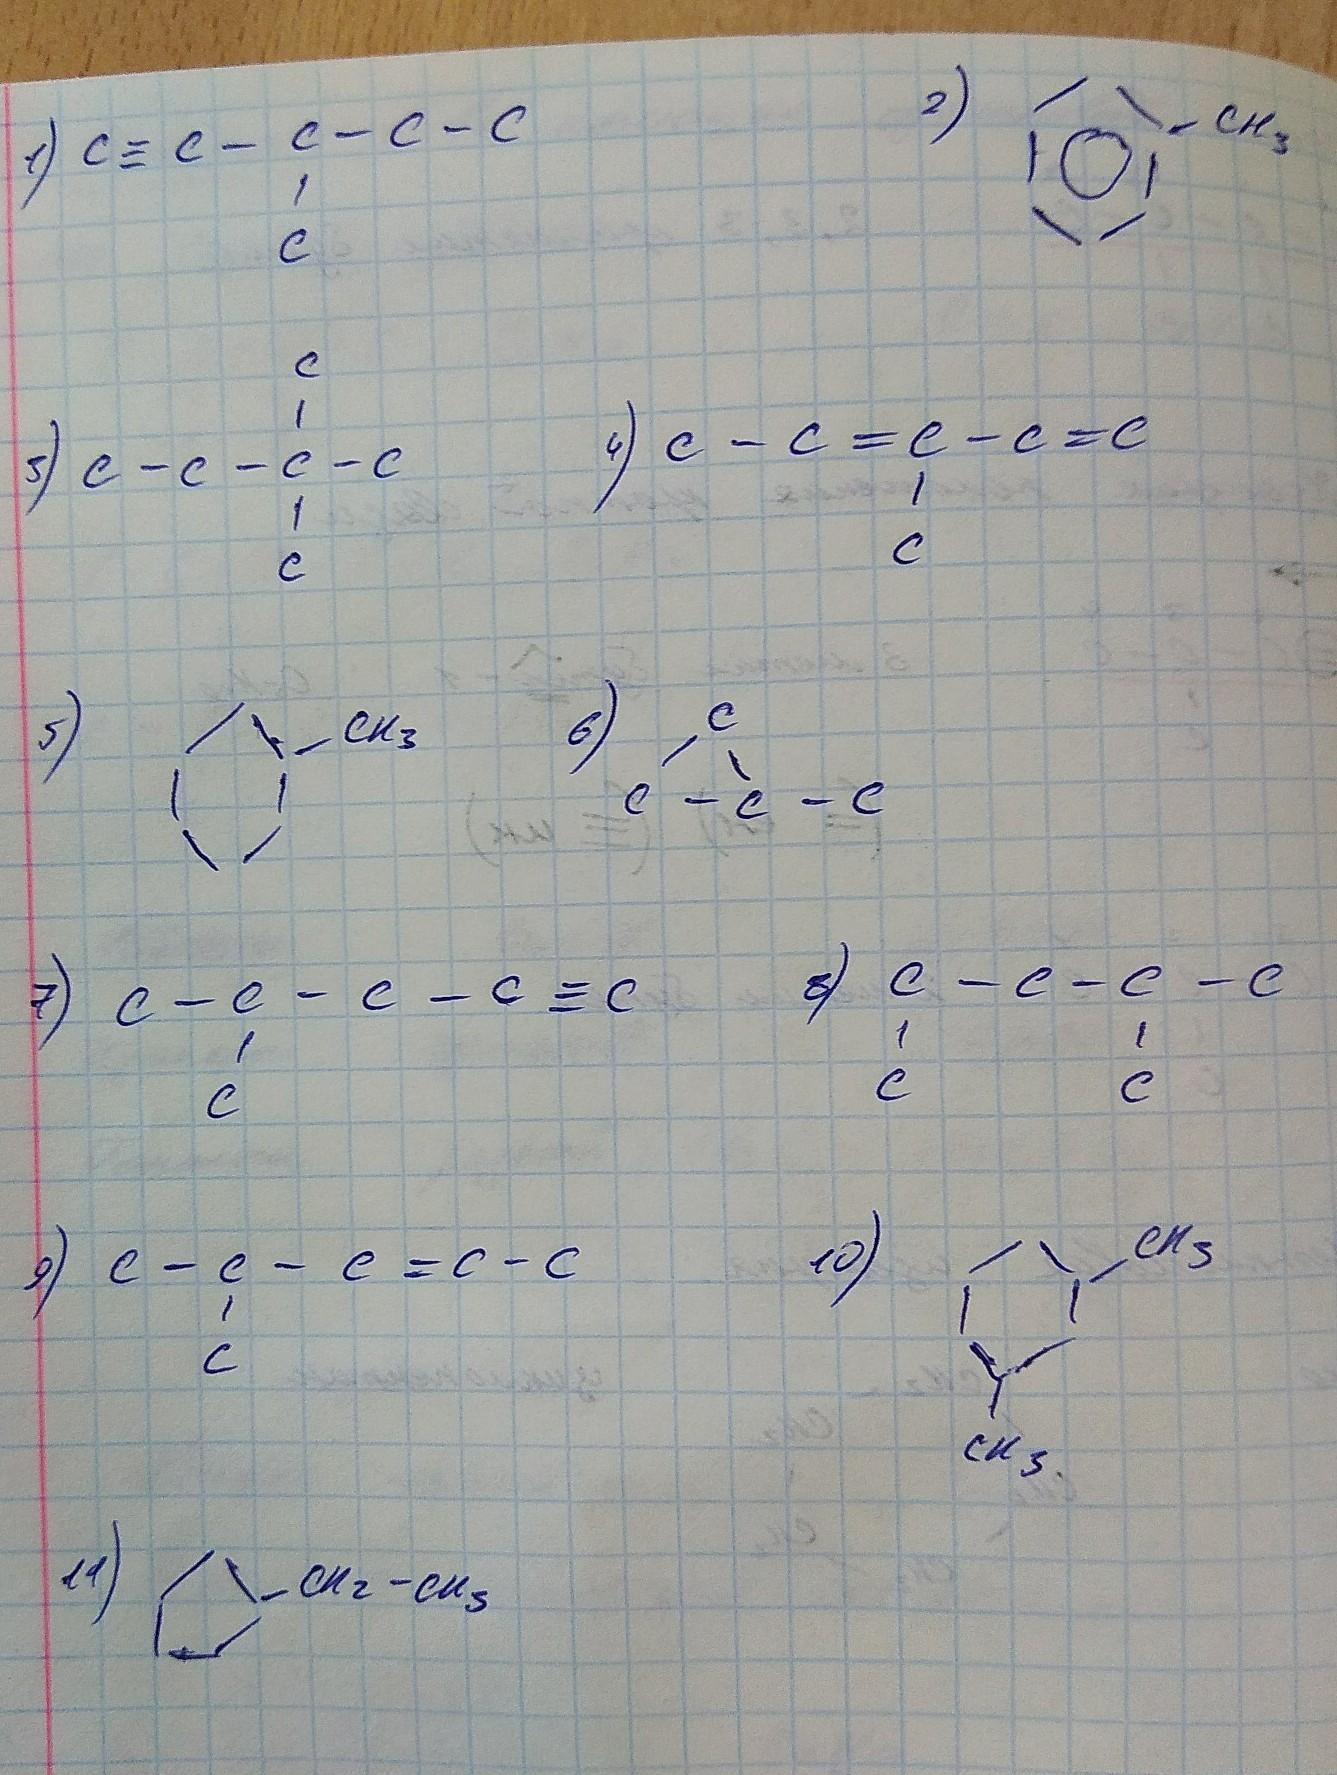 1) C ≡ C - C - C - C
C
2) - CH3
C
3) C - C - C - C
C
4) C - C = C - C = C
C
5) - CH3
6) C
C - C - C
7) C - C - C - C ≡ C
C
8) C - C - C - C
C C
9) C - C - C = C - C
C
10) CH3
CH3
11) - CH2 - CH3